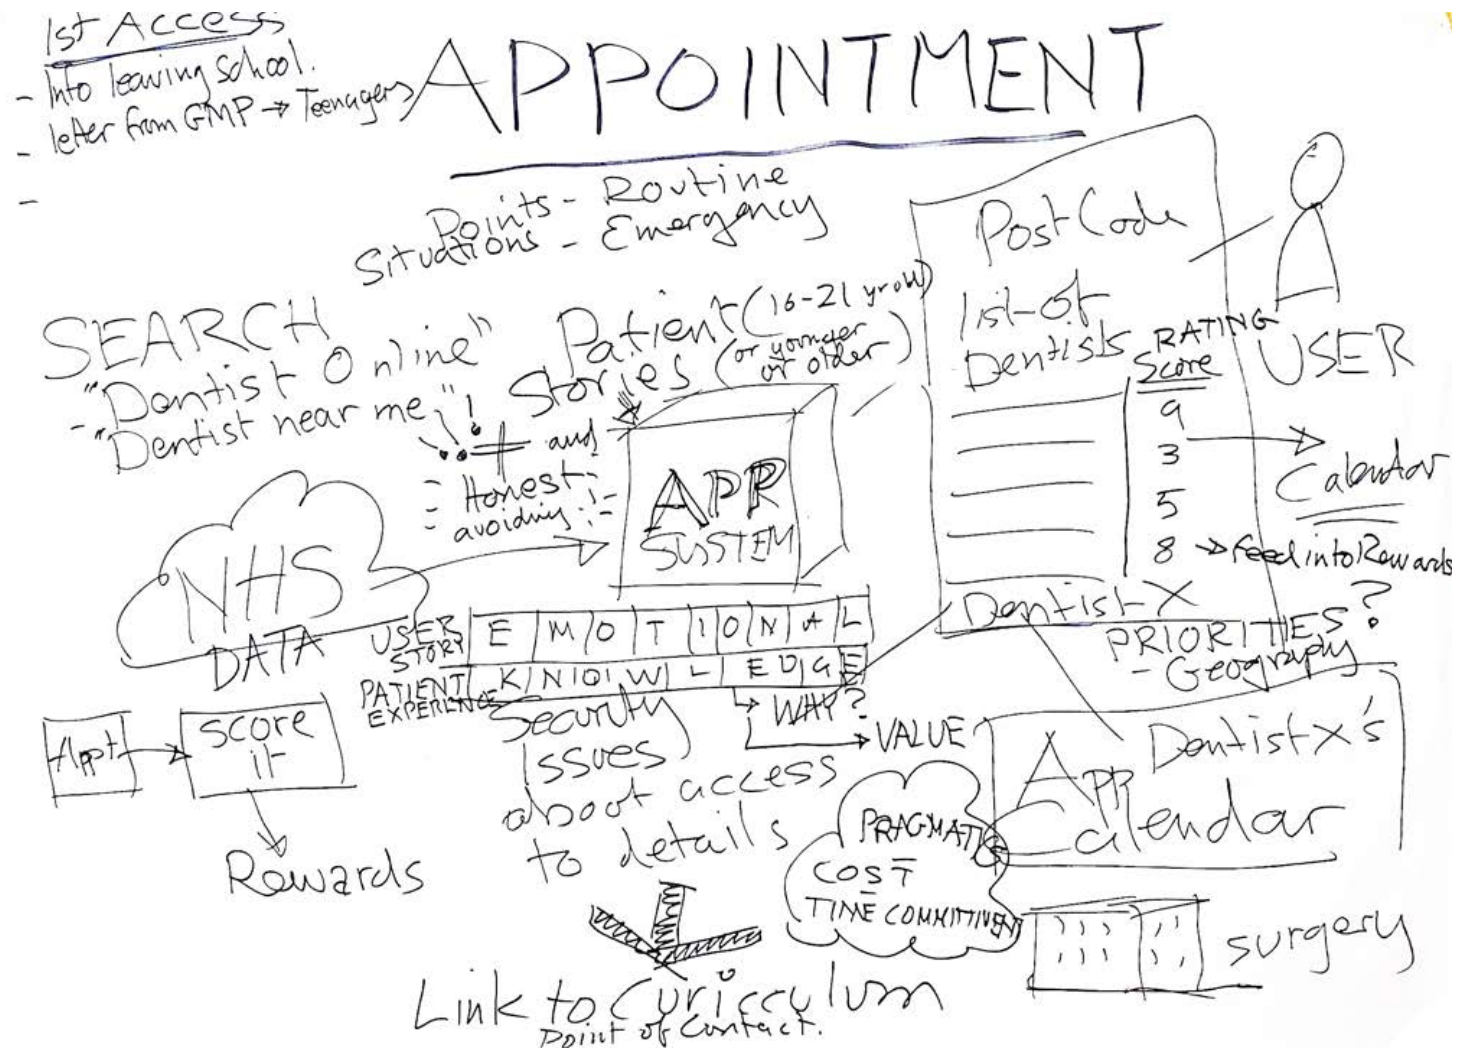 1st Access
- Into leaving school.
letter from GMP → Teenagers
-
-
APPOINTMENT
Points - Routine
Situations - Emergency
SEARCH
- "Dentist Online"
- "Dentist near me"
Patient (16-21 yr old)
Stories (or younger
or older)
!
and
Honest
avoiding
APP
SYSTEM
NHS
DATA
USER
STORY
EMOTIONAL
PATIENT
EXPERIENCE
KNOWLEDGE
Appt
Score
it
Rewards
Security
Issues
about access
to details
WHY?
VALUE
PRAGMATIC
COST
TIME COMMITMENT
Link to Curicculum
Point of Contact.
Post Code
list of
Dentists
RATING
Score
9
3
5
8 → feed into Rewards
Calendar
USER
Dentist X
PRIORITIES?
- Geography
Dentist X's
App
Calendar
surgery